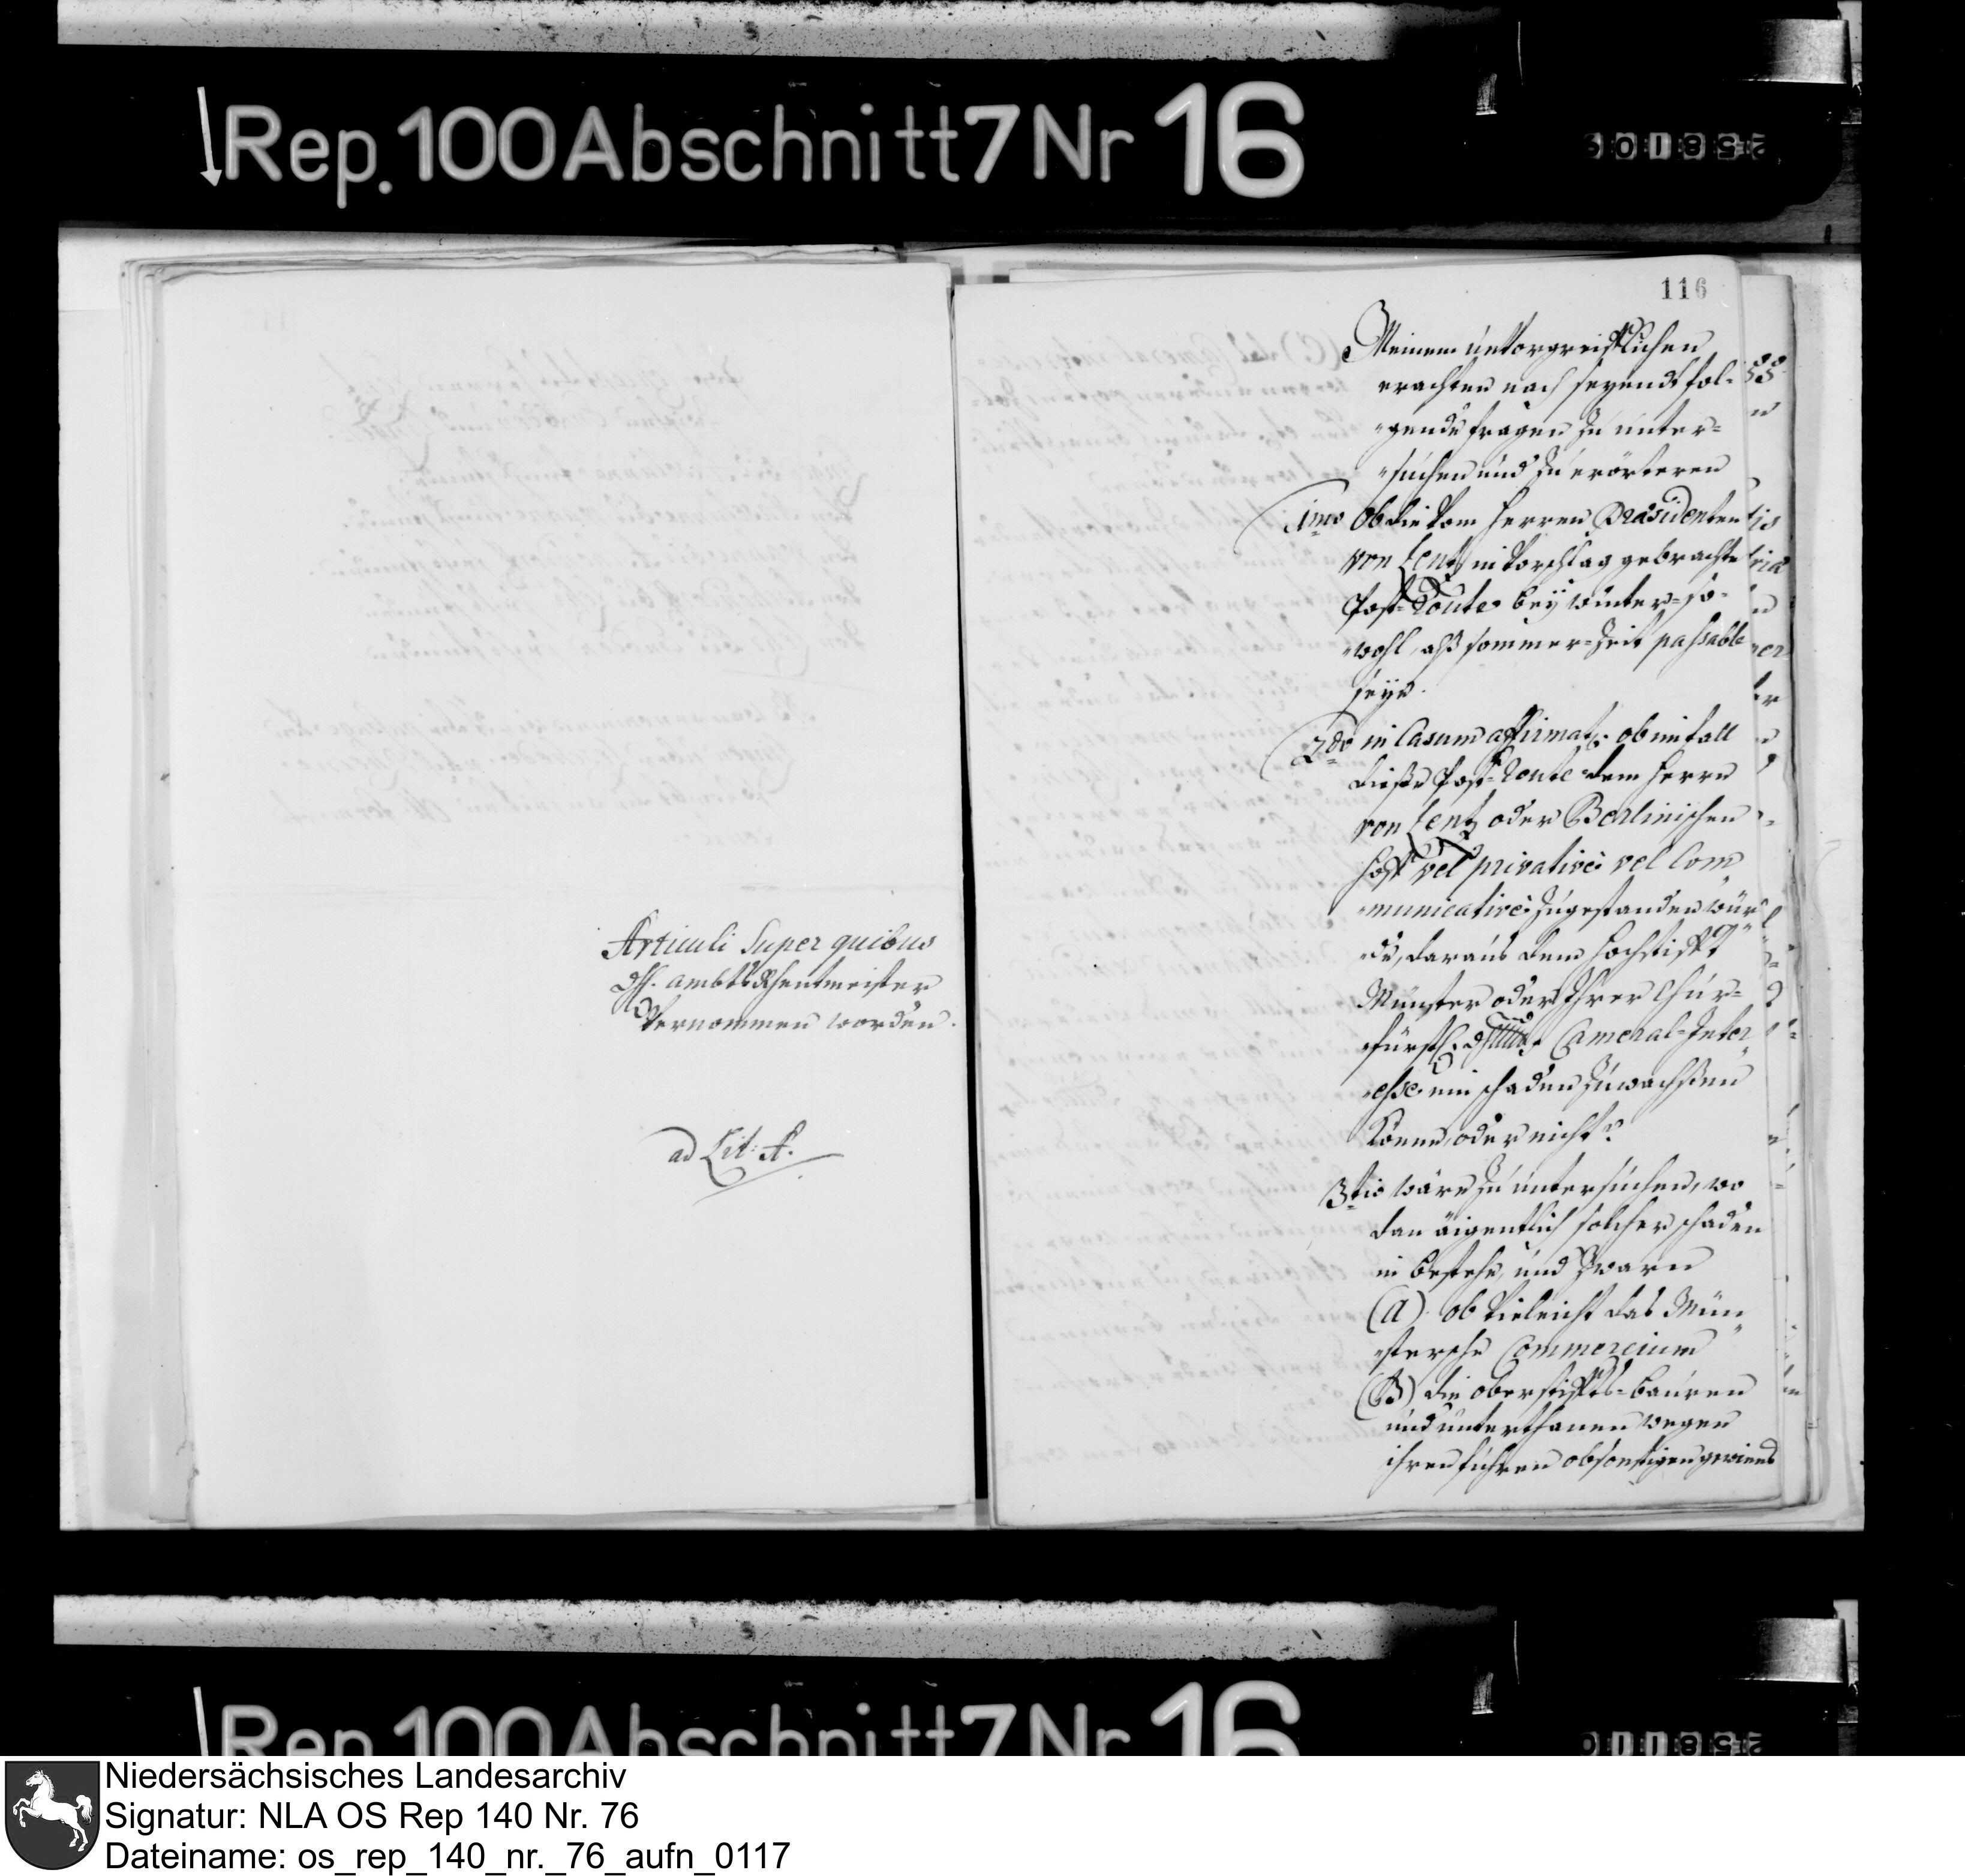 Rep. 100 Abschnitt 7 Nr 16
Articuli Super quibus
H. ambts Rhentmeister
Vernommen worden.
ad Lit: A.
116
Meinem unvorgreifflichen
erachten nach seyend fol-
gende fragen zu unter-
suchen und zu erörteren
1mo Ob die vom Herren Præsidenten
von Lentz in Vorschlag gebrachte
Post-Route bey winter- so-
wohl, alß sommer-Zeit passable
seye.
2do in Casum affirmat: ob im fall
diese Post-Route dem Herrn
von Lentz oder Berlinischen
Hoff vel privativè vel Com
municativè zugestanden wür
de, daraus dem Hochstifft
Münster oder Ihrer Chur-
fürstl. Cameral-Inter
esse ein schaden zuwachßen
könne, oder nicht?
3tio wäre zu untersuchen, wo
dan äigentlich solcher schaden
in bestehe, und zwaren
(A) ob vieleicht das Mün
stersche Commercium
(B) die oberstiffts-bauren
und unterthanen wegen
ihren fuhren obsonstigen gewinns
Rep. 100 Abschnitt 7 Nr 16
Niedersächsisches Landesarchiv
Signatur: NLA OS Rep 140 Nr. 76
Dateiname: os_rep_140_nr._76_aufn_0117